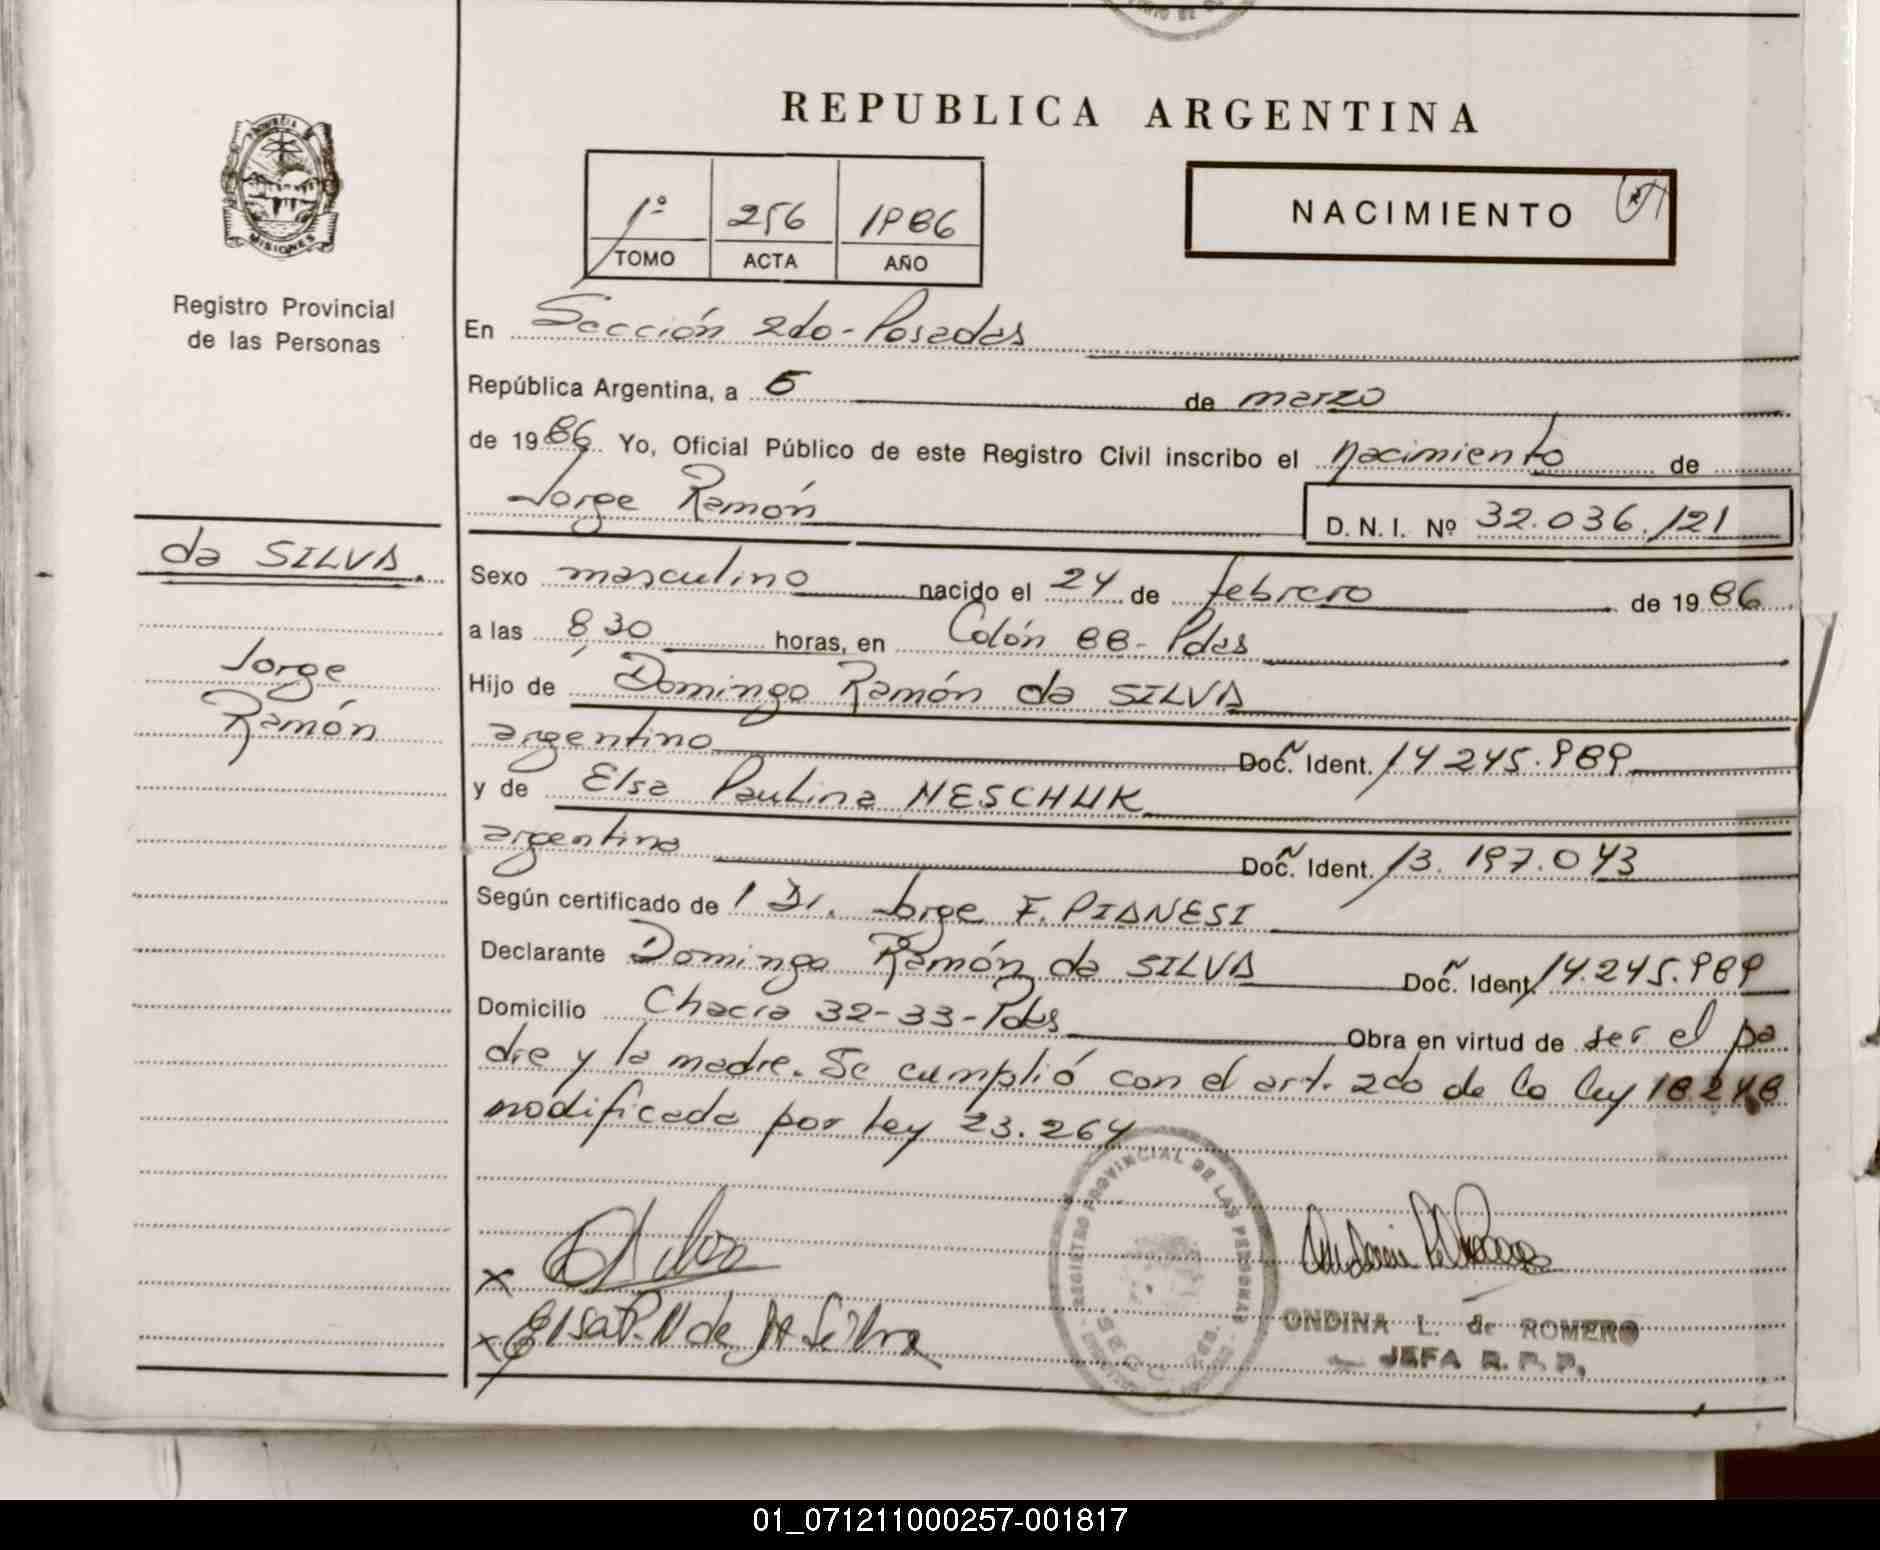 REPUBLICA ARGENTINA
1º 256 1986
TOMO ACTA AÑO
NACIMIENTO
MISIONES
Registro Provincial
de las Personas
En Sección 2do - Posadas
República Argentina, a 5 de marzo
de 1986. Yo, Oficial Público de este Registro Civil inscribo el nacimiento de
Jorge Ramón
D. N. I. Nº 32.036.121
da SILVA.
Jorge
Ramón
Sexo masculino nacido el 24 de febrero de 1986
a las 8,30 horas, en Colón 88 - Pdas
Hijo de Domingo Ramón da SILVA
argentino Doc. Ident. 14 245.989
y de Elsa Paulina NESCHUK
argentina Doc. Ident. 13.197.043
Según certificado de 1 Dr. Jorge F. PIANESI
Declarante Domingo Ramón da SILVA Doc. Ident. 14.245.989
Domicilio Chacra 32-33-Pdas Obra en virtud de ser el pa
dre y la madre. Se cumplió con el art. 2do de la ley 18.248
modificada por ley 23.264
REGISTRO PROVINCIAL DE LAS PERSONAS
Elsa P. N de da Silva
ONDINA L. de ROMERO
JEFA R. P. P.
01_071211000257-001817